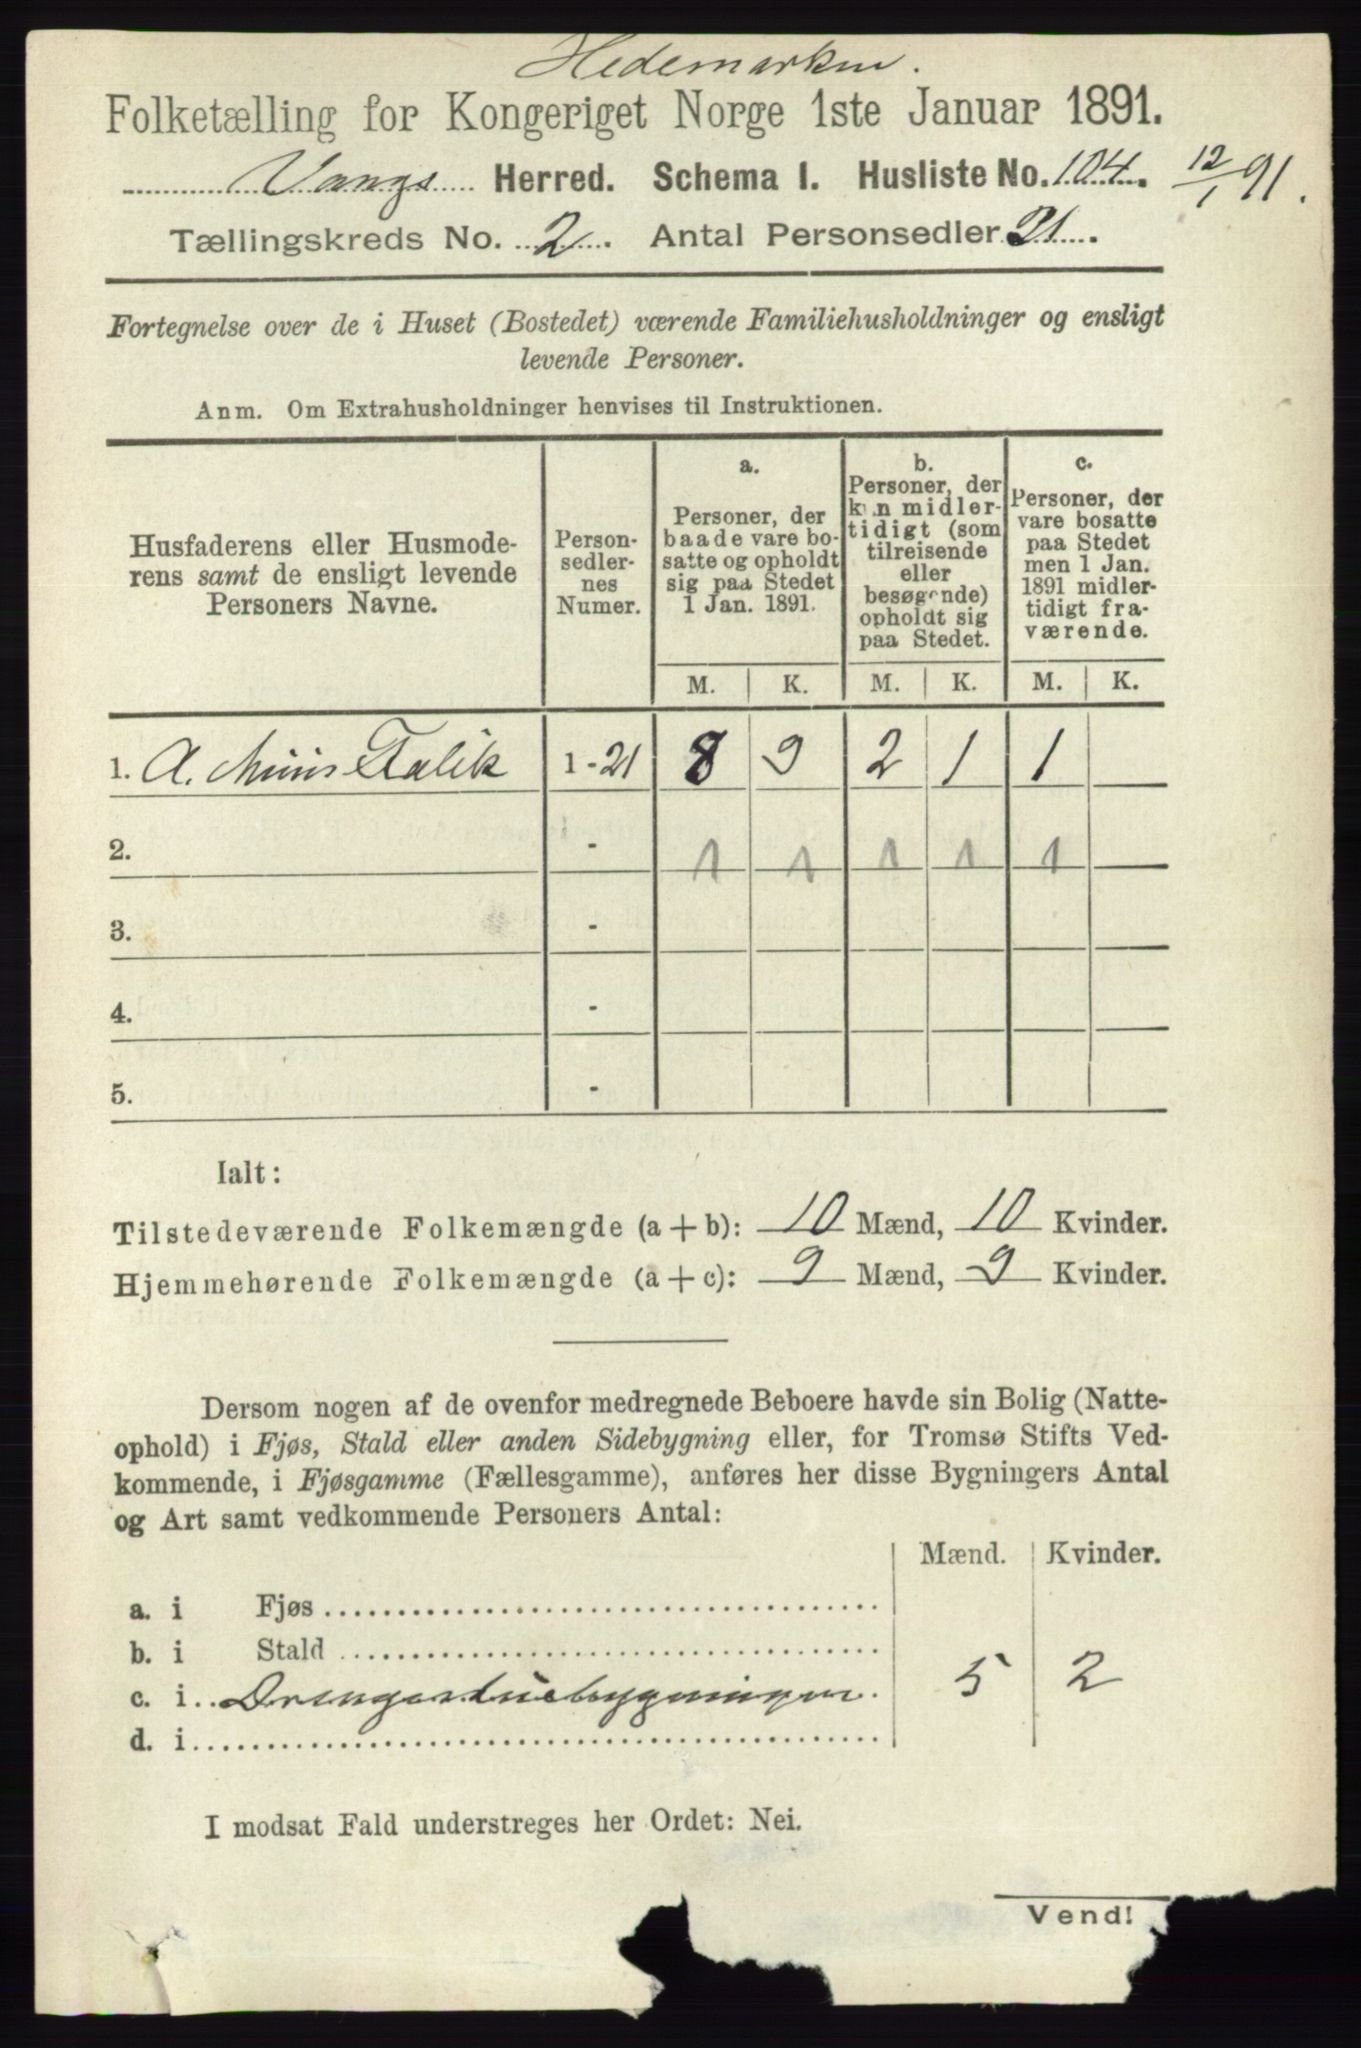 Hedemarken.
Folketælling for Kongeriget Norge 1ste Januar 1891.
Vangs Herred. Schema I. Husliste No. 104. 12/1 91.
Tællingskreds No. 2. Antal Personsedler 21.
Fortegnelse over de i Huset (Bostedet) værende Familiehusholdninger og ensligt
levende Personer.
Anm. Om Extrahusholdninger henvises til Instruktionen.
Husfaderens eller Husmode-
rens samt de ensligt levende
Personers Navne.
Person-
sedler-
nes
Numer.
a.
Personer, der
baade vare bo-
satte og opholdt
sig paa Stedet
1 Jan. 1891.
b.
Personer, der
kun midler-
tidigt (som
tilreisende
eller
besøgende)
opholdt sig
paa Stedet.
c.
Personer, der
vare bosatte
paa Stedet
men 1 Jan.
1891 midler-
tidigt fra-
værende.
M. K. M. K. M. K.
1. A. 1-21 8 9 2 1 1
2. - 1 1 1 1 1
3. -
4. -
5. -
Ialt:
Tilstedeværende Folkemængde (a + b): 10 Mænd, 10 Kvinder.
Hjemmehørende Folkemængde (a + c): 9 Mænd, 9 Kvinder.
Dersom nogen af de ovenfor medregnede Beboere havde sin Bolig (Natte-
ophold) i Fjøs, Stald eller anden Sidebygning eller, for Tromsø Stifts Ved-
kommende, i Fjøsgamme (Fællesgamme), anføres her disse Bygningers Antal
og Art samt vedkommende Personers Antal:
Mænd. Kvinder.
a. i Fjøs
b. i Stald
c. i Drengestuebygningen. 5 2
d. i
I modsat Fald understreges her Ordet: Nei.
Vend!